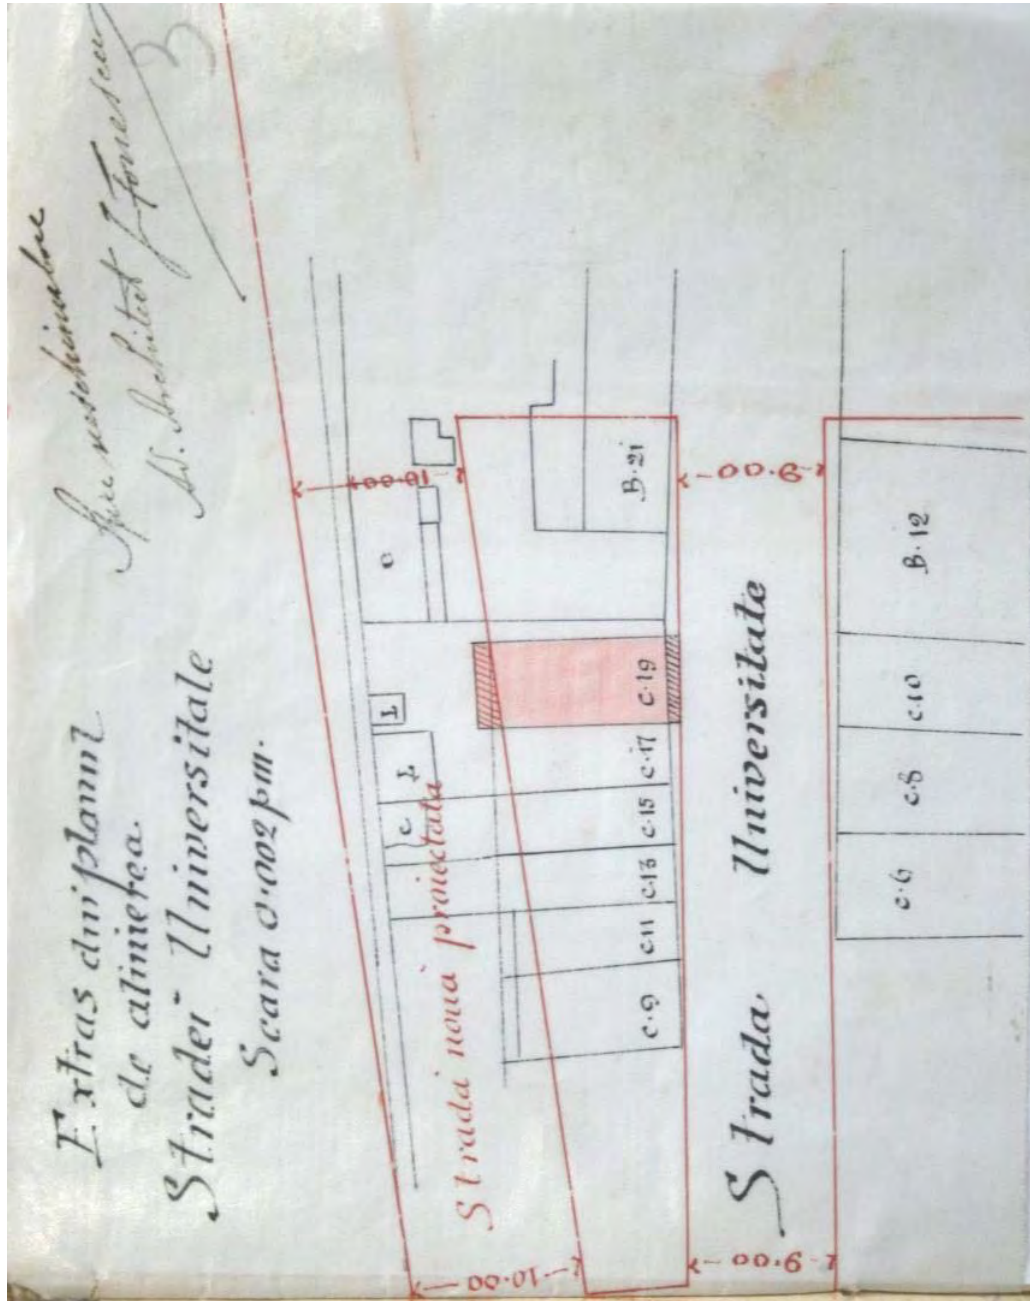 Extras din planul
de alinierea.
Stradei Universitate
Scara 0.002 p.m.
architect
10.00
10.00
Strada nouă proiectata
C
L
L
C
C.9
C.11
C.13
C.15
C.17
C.19
B.21
9.00
9.00
Strada Universitate
C.6
C.8
C.10
B.12